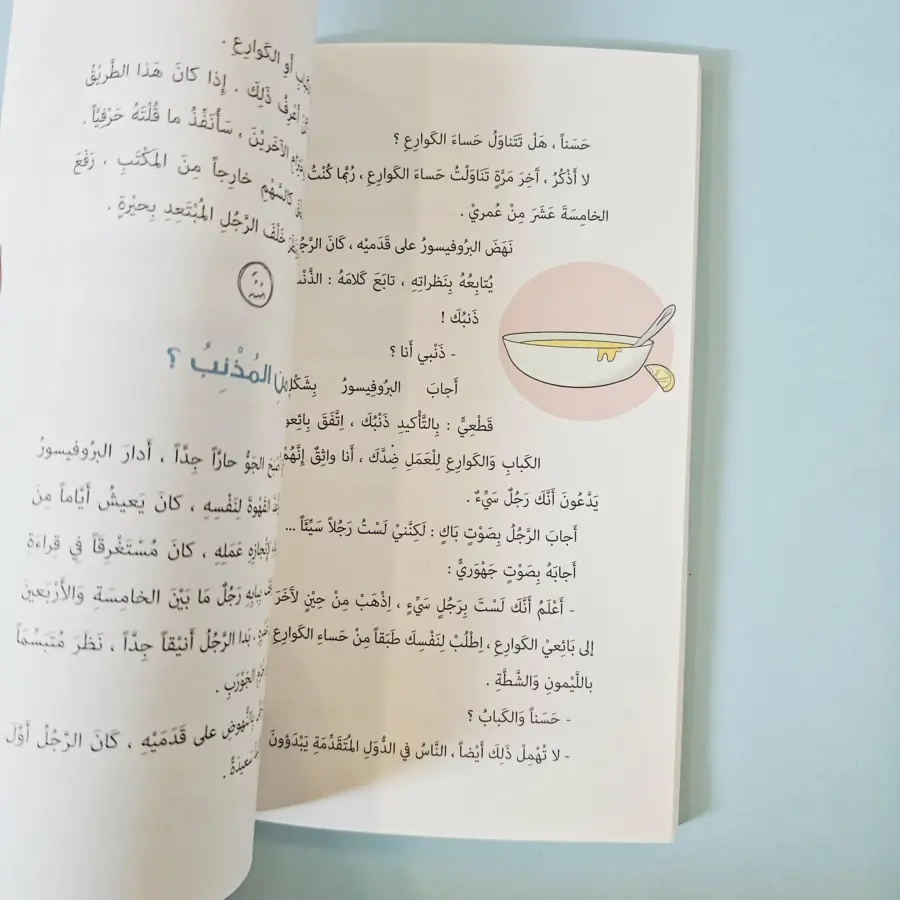 حَسَناً ، هَلْ تَتَناوَلُ حَساءَ الكَوارِعِ ؟
لا أَذْكُرُ ، آخِرَ مَرَّةٍ تَناوَلْتُ حَساءَ الكَوارِعِ ، رُبَّما كُنْتُ
الخامِسَةَ عَشَرَ مِنْ عُمريْ .
نَهَضَ البروفيسورُ على قَدَميْه ، كَانَ الرَّجُلُ
يُتابِعُهُ بِنَظراتِهِ ، تابَعَ كَلامَهُ :
ذَنبُكَ !
- ذَنْبي أَنا ؟
أَجابَ البرُوفِيسورُ بِشَكْلٍ
قَطْعِيٍّ : بِالتَّأْكيدِ ذَنْبُكَ ، اِتَّفَقَ بِائِعو
الكَبابِ وَالكَوارِعِ لِلْعَمَلِ ضِدَّكَ ، أَنا واثِقٌ إِنَّهُمْ
يَدَّعُونَ أَنَّكَ رَجُلٌ سَيِّءٌ .
أَجابَ الرَّجُلُ بِصَوْتٍ بَاكٍ : لَكِنَّنيْ لَسْتُ رَجُلاً سَيِّئاً ...
أَجابَهُ بِصَوْتٍ جَهْوَرِيٍّ :
- أَعْلَمُ أَنَّكَ لَسْتَ بِرَجُلٍ سَيِّءٍ ، اِذْهَبْ مِنْ حِيْنٍ لآخَرَ
إلى بَائِعيْ الكَوارِعِ ، اِطْلُبْ لِنَفْسِكَ طَبَقاً مِنْ حَساءِ الكَوارِعِ
بالليْمونِ وَالشَّطَّةِ .
- حَسَناً وَالكَبابُ ؟
- لا تُهْمِلْ ذَلِكَ أَيْضاً ، النَّاسُ في الدُّوَلِ المُتَقَدِّمَةِ يَبْدَؤونَ
أَوِ الكَوارِعِ .
أَعْرِفُ ذَلِكَ . إِذا كانَ هَذا الطَّرِيْقُ
الآخَرِيْنَ ، سَأُنَفِّذُ ما قُلْتَهُ حَرْفِيّاً .
كالسَّهْمِ خارِجاً مِنَ المَكْتَبِ ، رَفَعَ
خَلْفَ الرَّجُلِ المُبْتَعِدِ بِحيْرةٍ .
المُذْنِبُ ؟
الجَوُّ حارّاً جِدَّاً ، أَدارَ البرُوفيسورُ
القَهْوَةَ لِنَفْسِهِ ، كانَ يَعيشُ أَيَّاماً مِنَ
عَمَلِهِ ، كانَ مُسْتَغْرِقَاً في قِراءَةِ
بِبابِهِ رَجُلٌ مَا بَيْنَ الخامِسَةِ وَالأَرْبَعينَ
، بَدَا الرَّجُلُ أَنيْقاً جِدَّاً ، نَظَرَ مُتَبَسِّمَاً
الجَوْرَبِ .
بِالنُّهوضِ على قَدَمَيْهِ ، كَانَ الرَّجُلُ أَوَّلَ
سَعيدَةً .